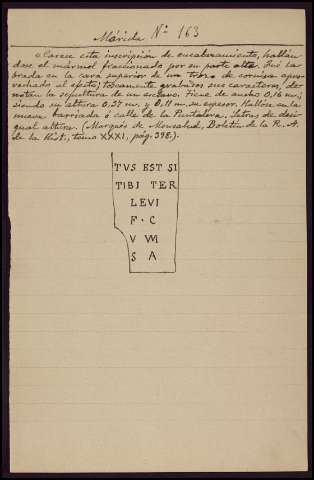 Mérida Nº 163
«Carece esta inscripción de encabezamiento, hallán-
dose el mármol fraccionado por su parte alta. Fué la-
brada en la cara superior de un trozo de cornisa apro-
vechado al efecto; toscamente grabados sus caracteres, de-
notan la sepultura de un esclavo. Tiene de ancho 0,16 m.;
siendo su altura 0,27 m. y 0,11 m. su espesor. Hallóse en la
nueva barriada ó calle de la Plantalera. Letras de desi-
gual altura. (Marqués de Monsalud, Boletín de la R. A.
de la Hist., tomo XXXI, pág. 398.).
TVS EST SI
TIBI TER
LEVI
F · C
V VVI
S A